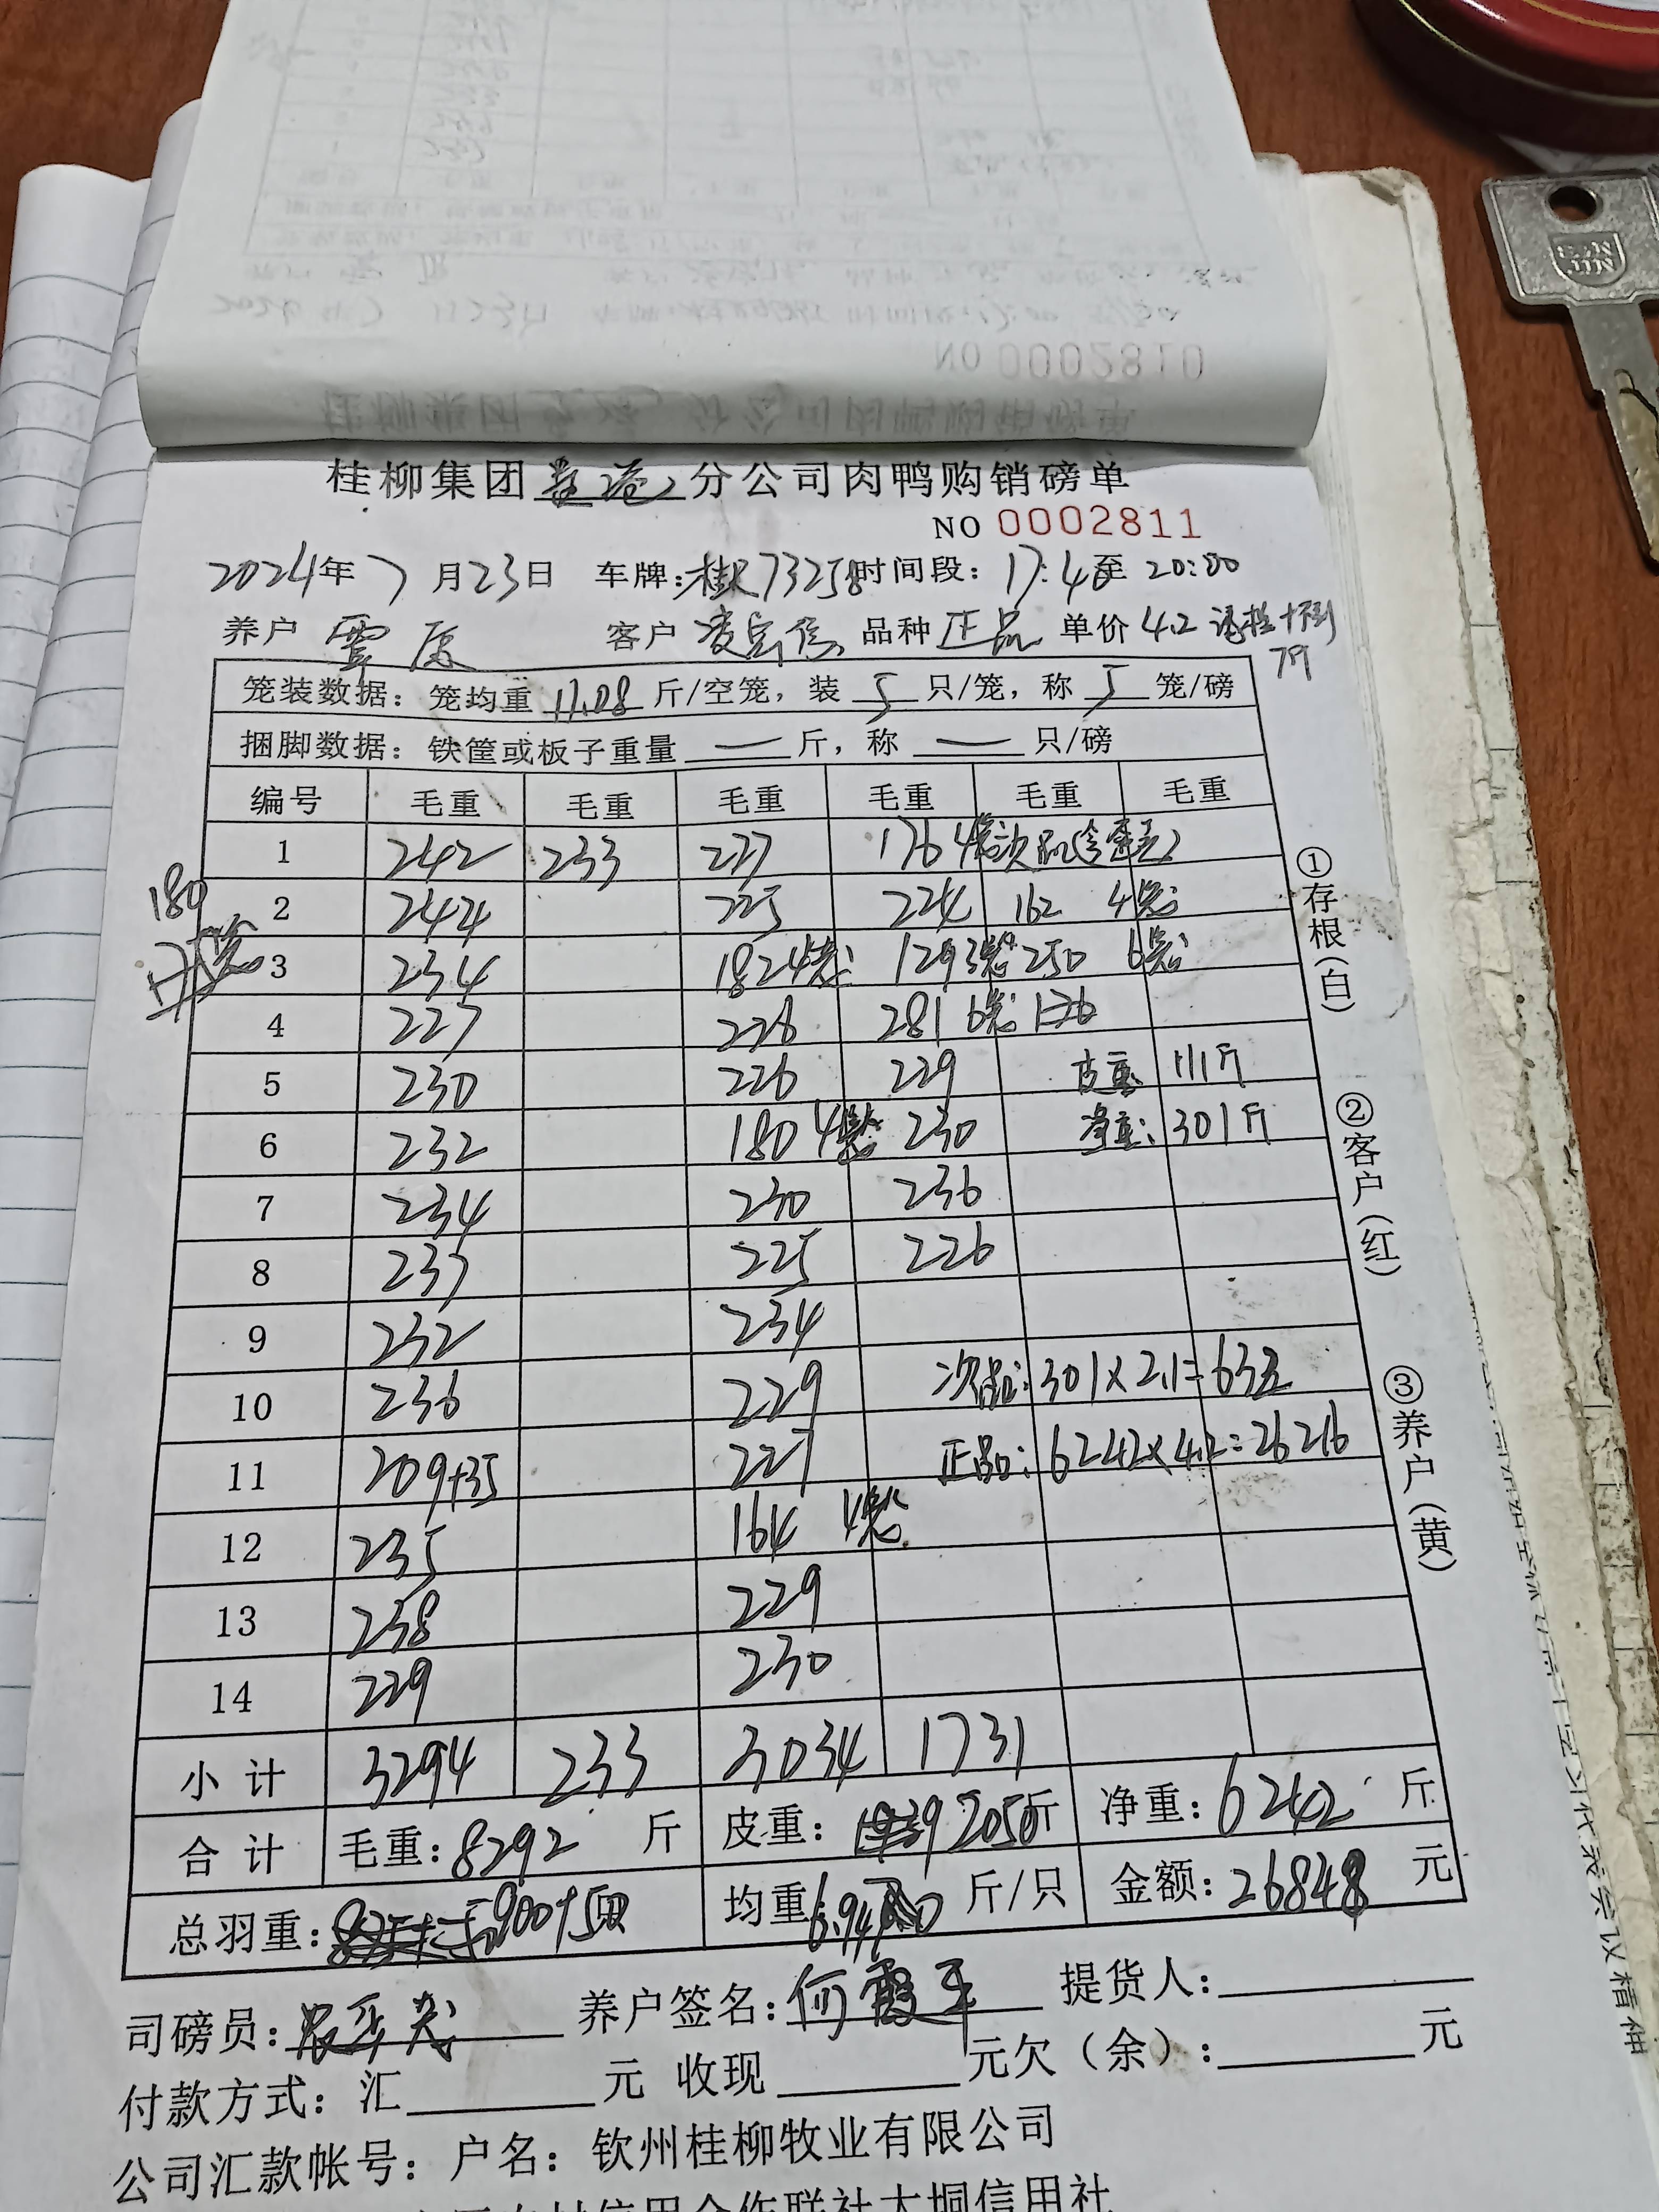 NO 0002810
桂柳集团贵港分公司肉鸭购销磅单
NO 0002811
2024年7月23日 车牌:桂K73258 时间段:17:40至20:00
养户 覃原 客户 品种 正品 单价 4.2
79
笼装数据:笼均重 11.08 斤/空笼,装 5 只/笼,称 5 笼/磅
捆脚数据:铁筐或板子重量 — 斤,称 — 只/磅
编号 毛重 毛重 毛重 毛重 毛重 毛重
1 242 233 227 176 4笼 次品
180
2 244 225 224 162 4笼
3 234 182 4笼 129 3笼 250 6笼
4 227 226 281 6笼 126
5 230 226 229 皮重 111斤
6 232 180 4笼 230 净重:301斤
7 234 230 236
8 237 225 226
9 232 234
10 236 229 次品:301×2.1=632
11 209+35 227 正品:6242×4.2=26216
12 235 164 4笼
13 238 229
14 229 230
小计 3294 233 3034 1731
合计 毛重:8292 斤 皮重:2050斤 净重:6242 斤
总羽重:900 均重 6.94 斤/只 金额:26848 元
司磅员: 养户签名:何霞平 提货人:
付款方式:汇 元 收现 元欠(余): 元
公司汇款帐号:户名:钦州桂柳牧业有限公司
信用合作联社大垌信用社
①存根(白)
②客户(红)
③养户(黄)